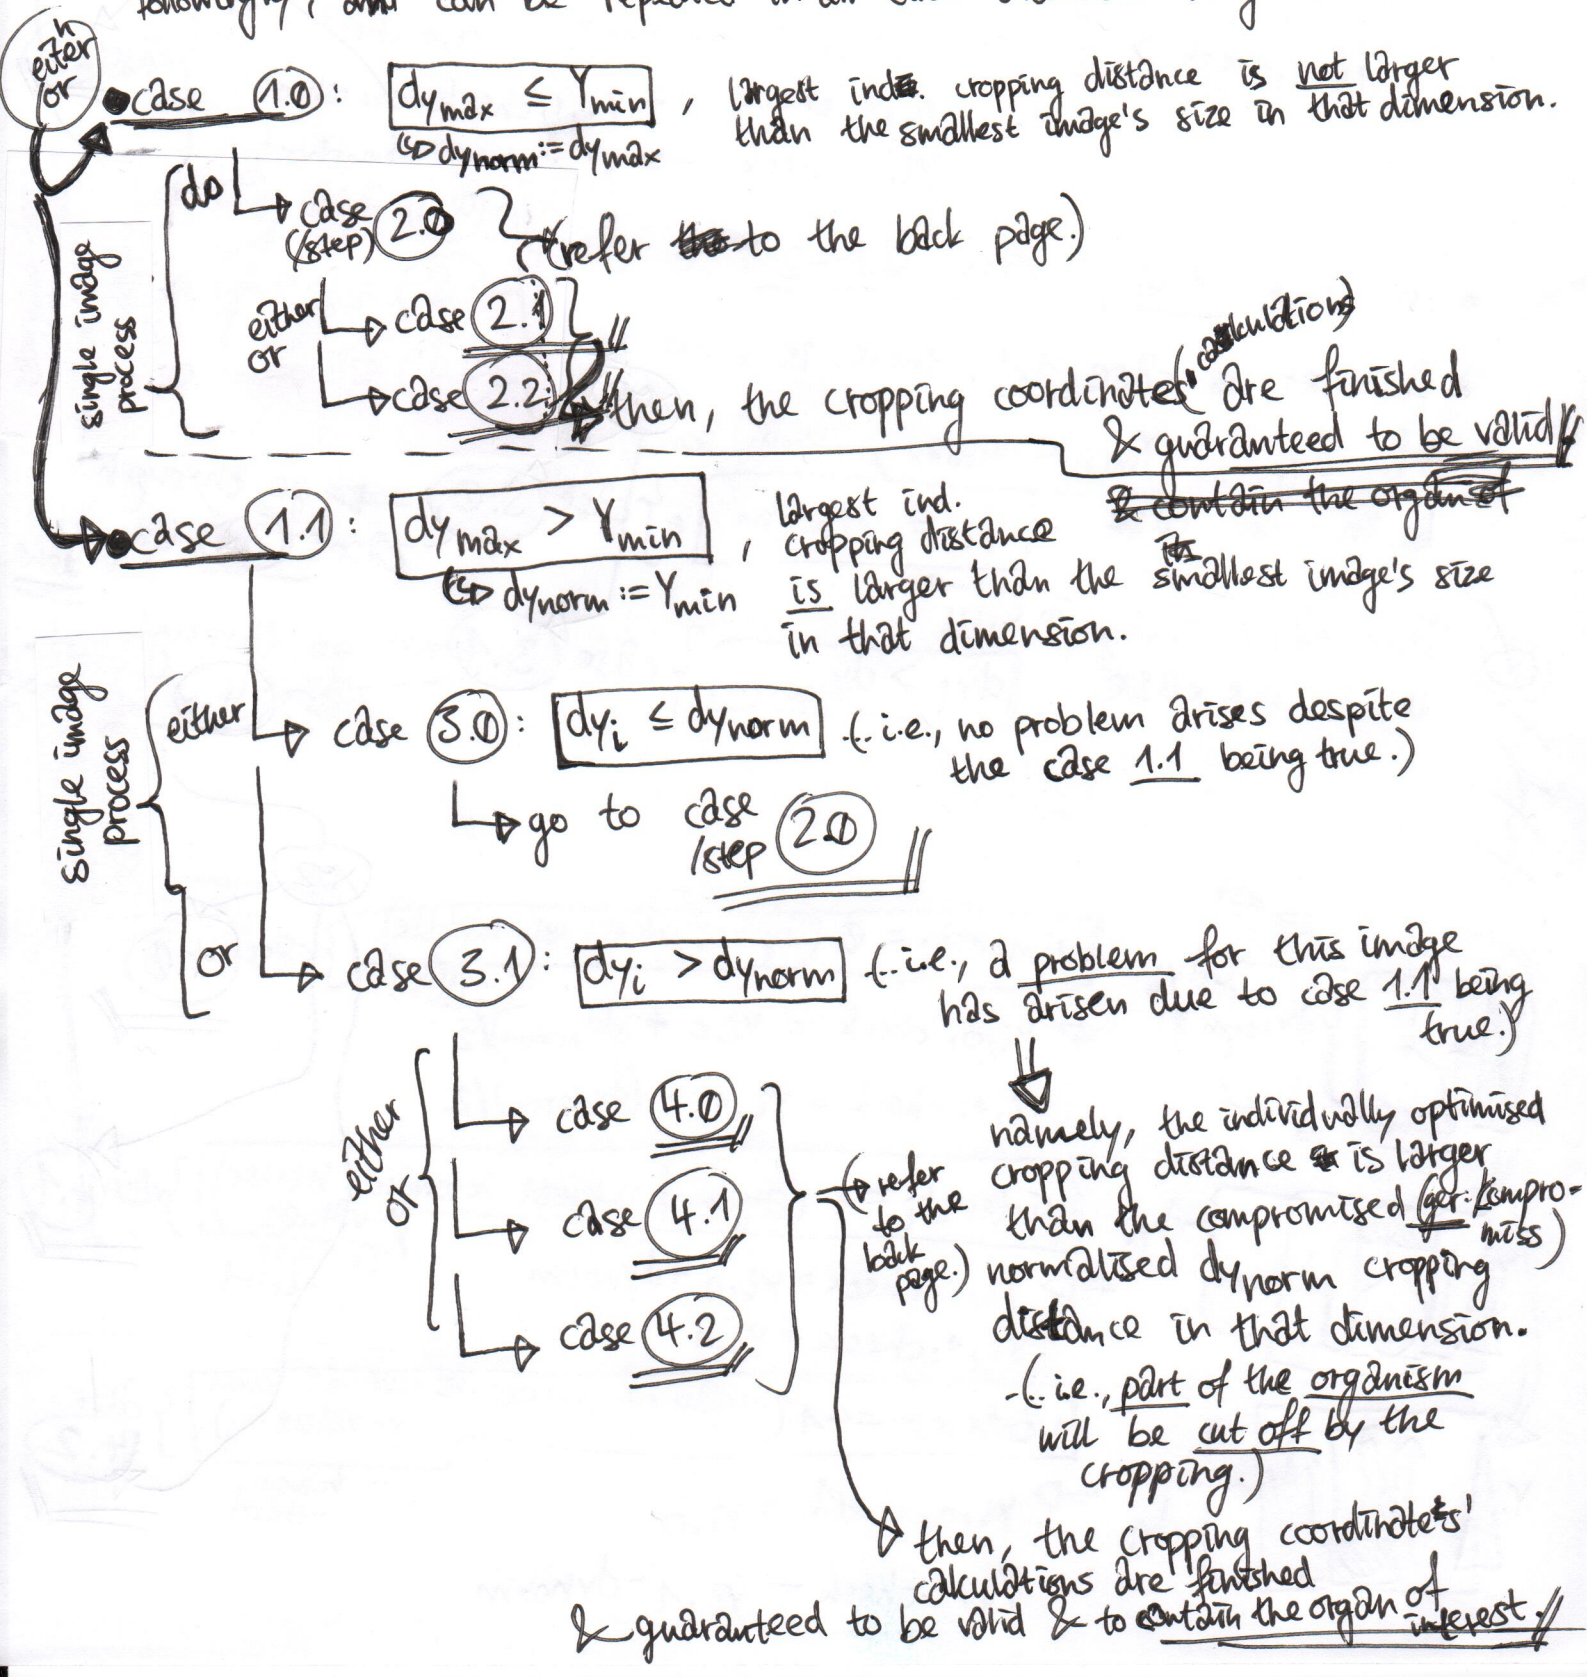 either
or
• case 1.0: dy max ≤ Y min , largest ind. cropping distance is not larger
than the smallest image's size in that dimension.
↳ dy norm := dy max
single image
process
do
case
(/step) 2.0
(refer to the back page.)
either
case 2.1
or
case 2.2
then, the cropping coordinates' (calculations) are finished
& guaranteed to be valid
• case 1.1: dy max > Y min , largest ind.
cropping distance
is larger than the smallest image's size
in that dimension.
↳ dy norm := Y min
single image
process
either
case 3.0: dy i ≤ dy norm (..i.e., no problem arises despite
the case 1.1 being true.)
go to case
/step 2.0
or
case 3.1: dy i > dy norm (..i.e., a problem for this image
has arisen due to case 1.1 being
true.)
either
or
case 4.0
case 4.1
case 4.2
(refer
to the
back
page.)
namely, the individually optimised
cropping distance is larger
than the compromised (ger: Kompro-
miss)
normalised dy norm cropping
distance in that dimension.
(..i.e., part of the organism
will be cut off by the
cropping.)
then, the cropping coordinates'
calculations are finished
& guaranteed to be valid & to contain the organ of
interest.